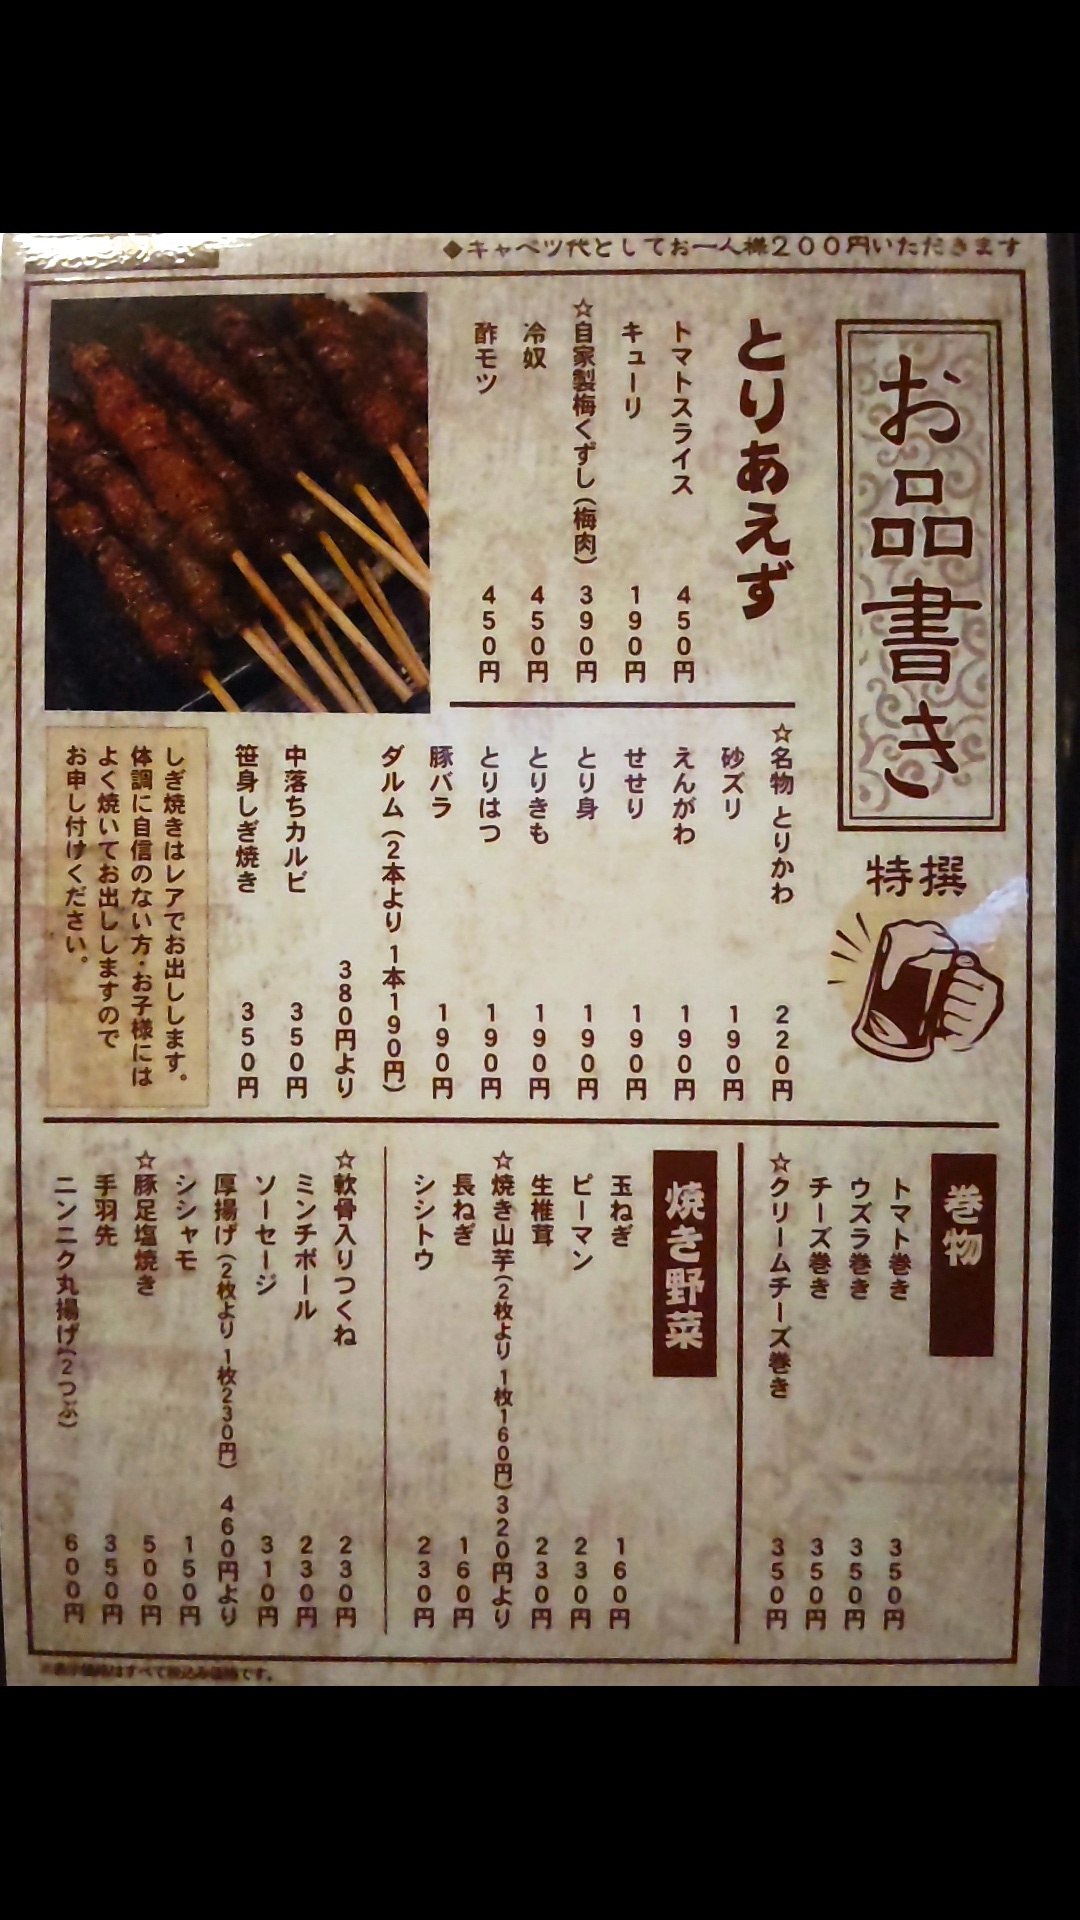 ◆キャベツ代としてお一人様200円いただきます
お品書き
特撰
とりあえず
トマトスライス 450円
キューリ 190円
☆自家製梅くずし（梅肉） 390円
冷奴 450円
酢モツ 450円
☆名物 とりかわ 220円
砂ズリ 190円
えんがわ 190円
せせり 190円
とり身 190円
とりきも 190円
とりはつ 190円
豚バラ 190円
ダルム（2本より 1本190円）
380円より
中落ちカルビ 350円
笹身しぎ焼き 350円
しぎ焼きはレアでお出しします。
体調に自信のない方・お子様には
よく焼いてお出ししますので
お申し付けください。
巻物
トマト巻き 350円
ウズラ巻き 350円
チーズ巻き 350円
☆クリームチーズ巻き 350円
焼き野菜
玉ねぎ 160円
ピーマン 230円
生椎茸 230円
☆焼き山芋（2枚より 1枚160円）320円より
長ねぎ 160円
シシトウ 230円
☆軟骨入りつくね 230円
ミンチボール 230円
ソーセージ 310円
厚揚げ（2枚より 1枚230円） 460円より
シシャモ 150円
☆豚足塩焼き 500円
手羽先 350円
ニンニク丸揚げ（2つぶ） 600円
※表示価格はすべて税込み価格です。